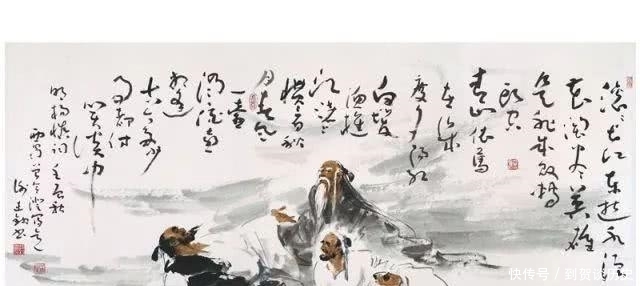 滚滚长江东逝水浪
花淘尽英雄
是非成败转
头空
青山依旧
在几度
夕阳红
白发
渔樵
江渚上
惯看秋
月春风
一壶
浊酒喜
相逢
古今多少
事都付
笑谈中
明杨慎词
快传号